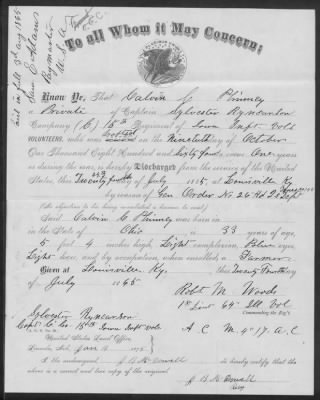 Paid in full 3d aug 1865
Paymaster
U.S.A.
To all Whom it May Concern:
Know Ye, That Calvin C. Phinney
a Private of Captain Sylvester Rynearson
Company (C.) 15th Regiment of Iowa Inft Vols
VOLUNTEERS, who was drafted on the Nineteenth day of October
One Thousand Eight Hundred and Sixty four to serve One year
during the war, is hereby Discharged from the service of the United
States, this Twenty fourth day of July 1865, at Louisville Ky
by reason of Gen Order No 26 Hd Qrs Dept
(No objection to his being re-enlisted is known to exist.)
Said Calvin C Phinney was born in
in the State of Ohio is 33 years of age,
5 feet 4 inches high, Light complexion, Blue eyes,
Light hair, and by occupation, when enrolled, a Farmer
Given at Louisville Ky. this Twenty Fourth day of
July 1865
Robt M. Woods
1st Lieut 64" Ill. Vol
Commanding the Reg't
Sylvester Rynearson
Capt C Co 15th Iowa Inft Vols A C M 4" 17. A.C
United States Land Office,
Lincoln, Neb., Jan 1875
I, the undersigned, J B McDowell do hereby certify that the
above is a correct and true copy of the original
J B McDowell